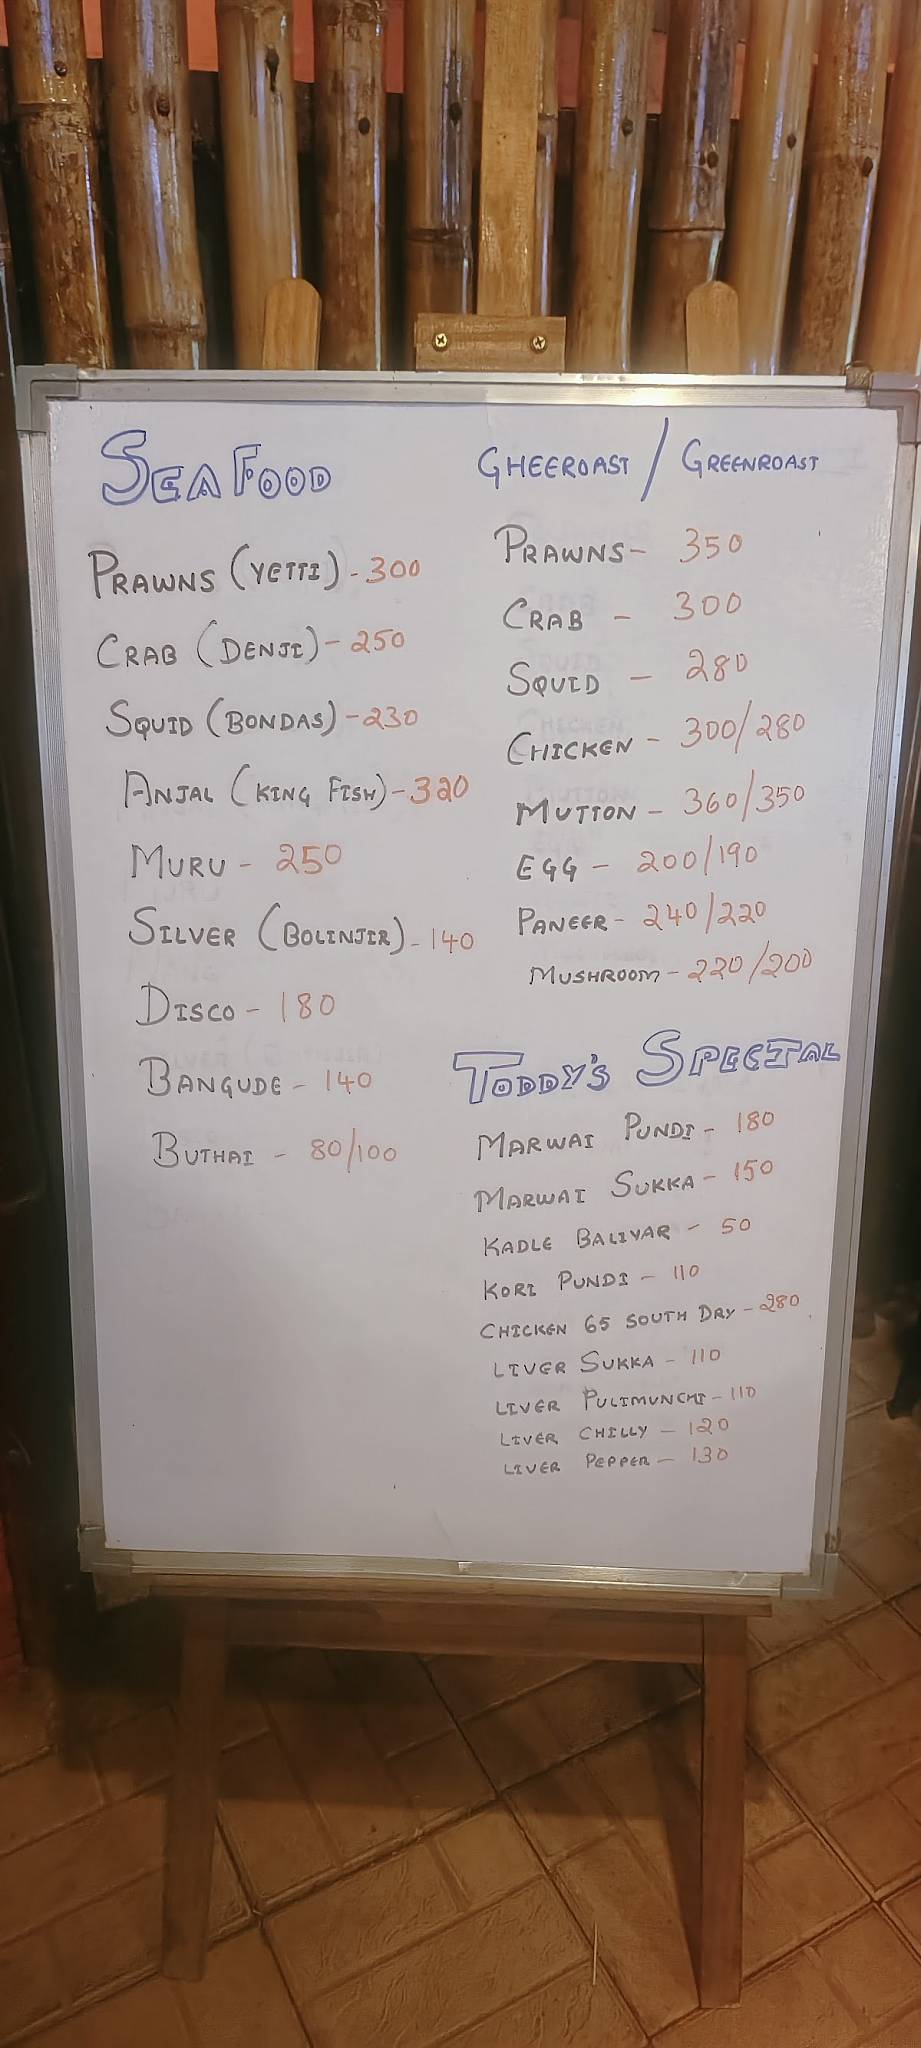 SEA FOOD
PRAWNS (YETTI) - 300
CRAB (DENJI) - 250
SQUID (BONDAS) - 230
ANJAL (KING FISH) - 320
MURU - 250
SILVER (BOLINJIR) - 140
DISCO - 180
BANGUDE - 140
BUTHAI - 80/100
GHEEROAST / GREENROAST
PRAWNS - 350
CRAB - 300
SQUID - 280
CHICKEN - 300/280
MUTTON - 360/350
EGG - 200/190
PANEER - 240/220
MUSHROOM - 220/200
TODDY'S SPECIAL
MARWAI PUNDI - 180
MARWAI SUKKA - 150
KADLE BALIYAR - 50
KORI PUNDI - 110
CHICKEN 65 SOUTH DRY - 280
LIVER SUKKA - 110
LIVER PULIMUNCHI - 110
LIVER CHILLY - 120
LIVER PEPPER - 130